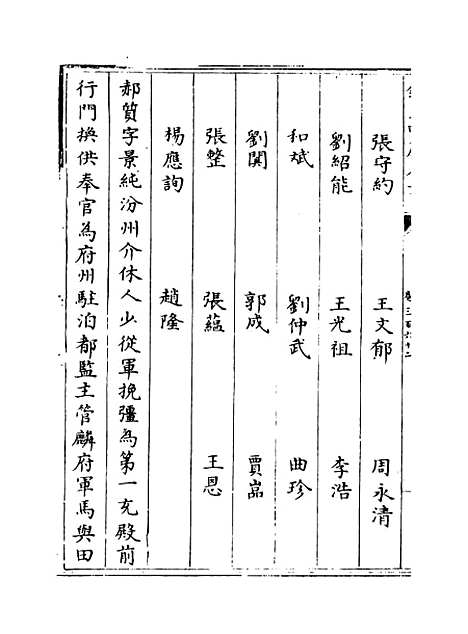 張守約 王文郁 周永清
劉紹能 王光祖 李浩
和斌 劉仲武 曲珍
劉闃 郭成 賈嵓
張整 張蘊 王恩
楊應詢 趙隆
郝質字景純汾州介休人少從軍挽彊為第一充殿前
行門換供奉官為府州駐泊都監主管麟府軍馬與田